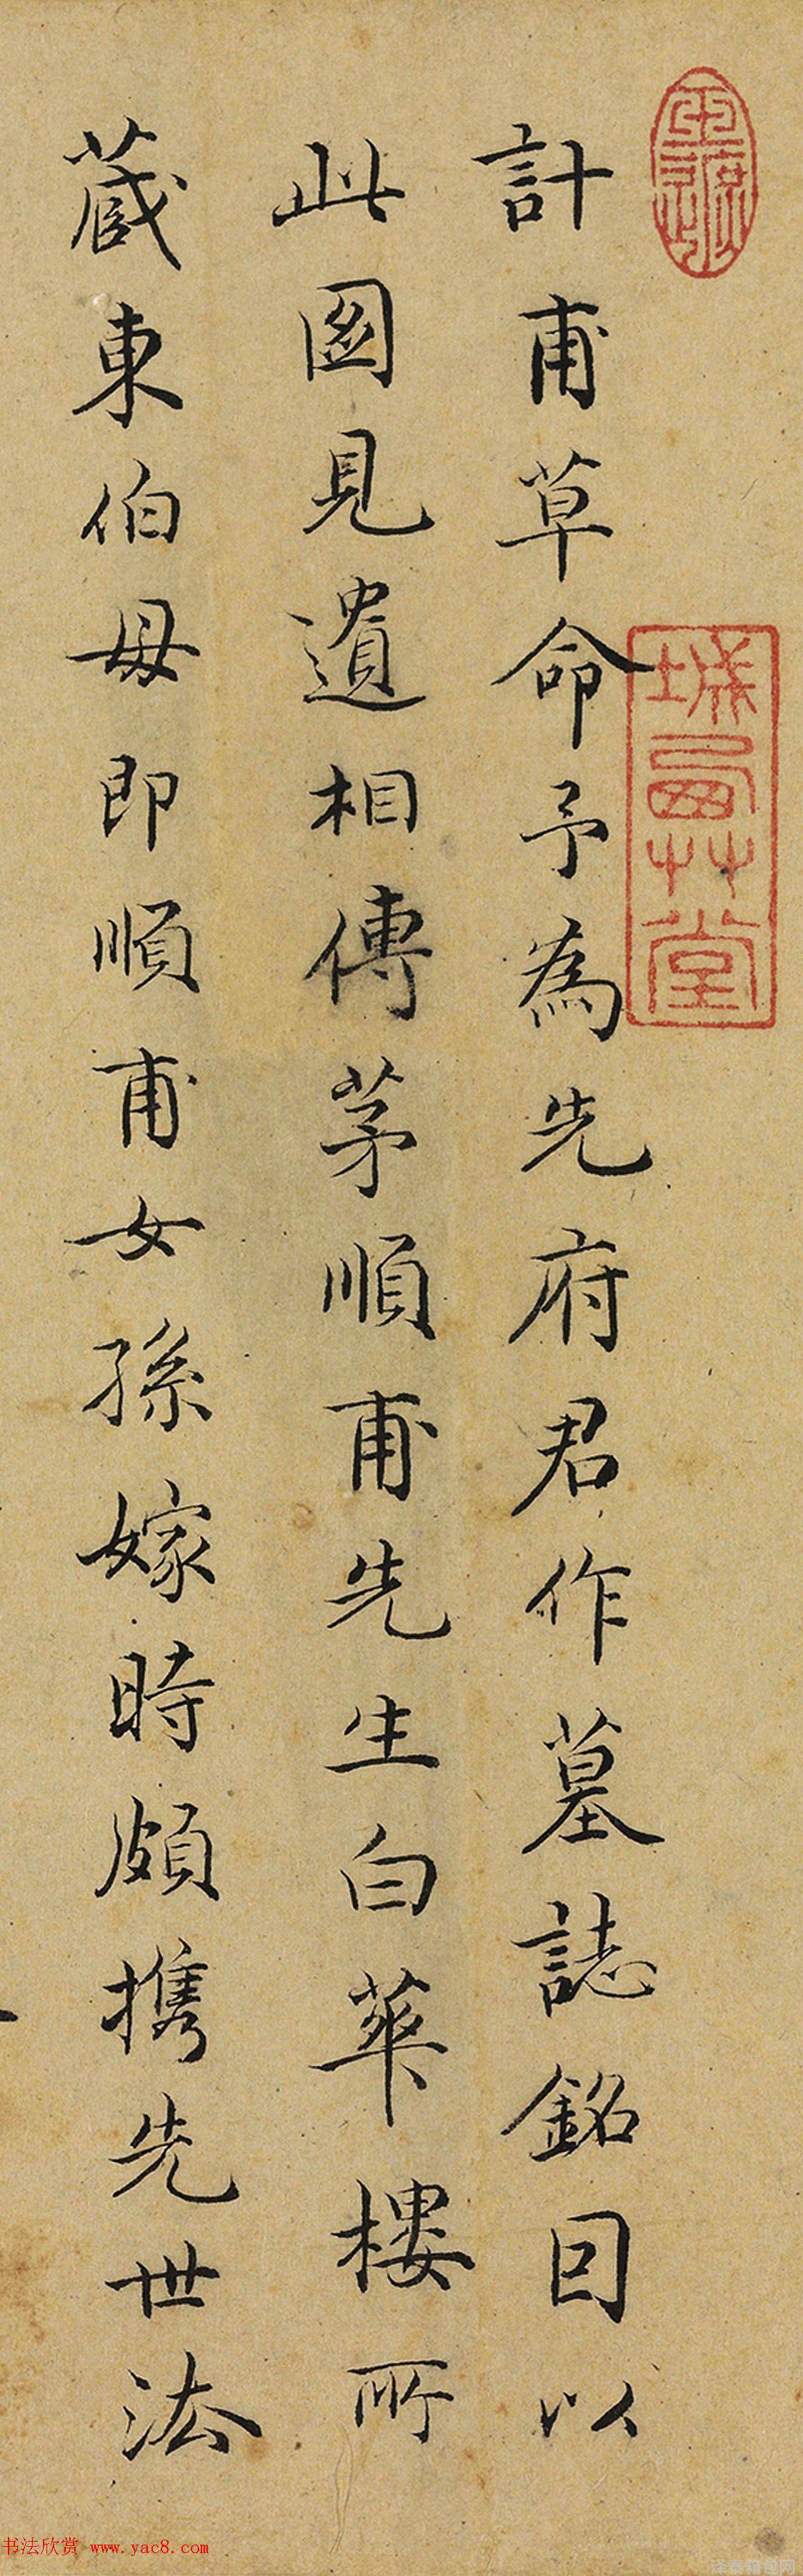 計甫草命予為先府君作墓誌銘囙以
此圖見遺相傳茅順甫先生白華樓所
藏東伯母即順甫女孫嫁時頗携先世法
书法欣赏 www.yac8.com